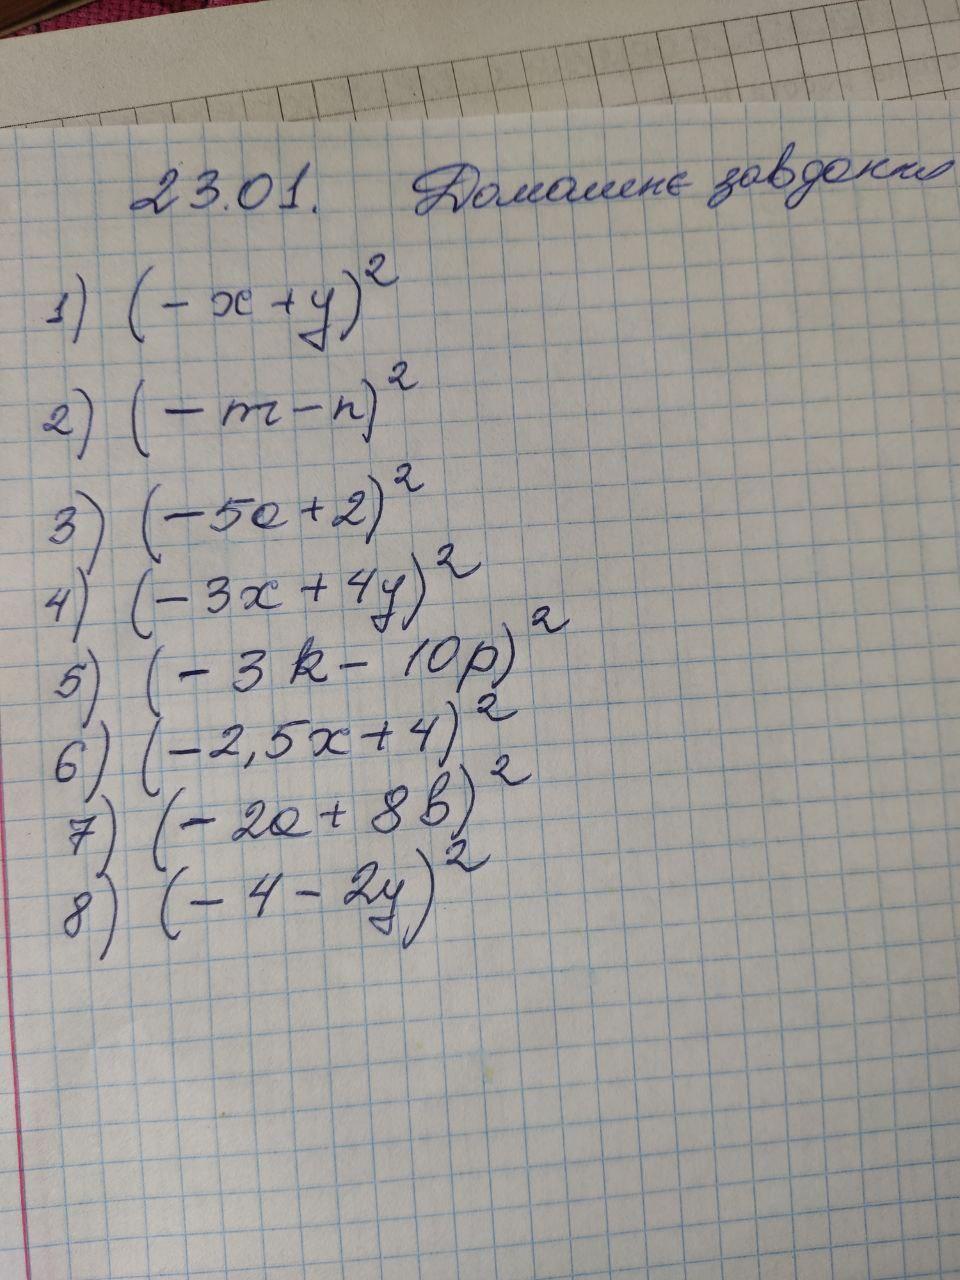 23.01. Домашнє завдання
1) (- x + y)²
2) (- m - n)²
3) (- 5a + 2)²
4) (- 3x + 4y)²
5) (- 3k - 10p)²
6) (- 2,5x + 4)²
7) (- 2a + 8b)²
8) (- 4 - 2y)²